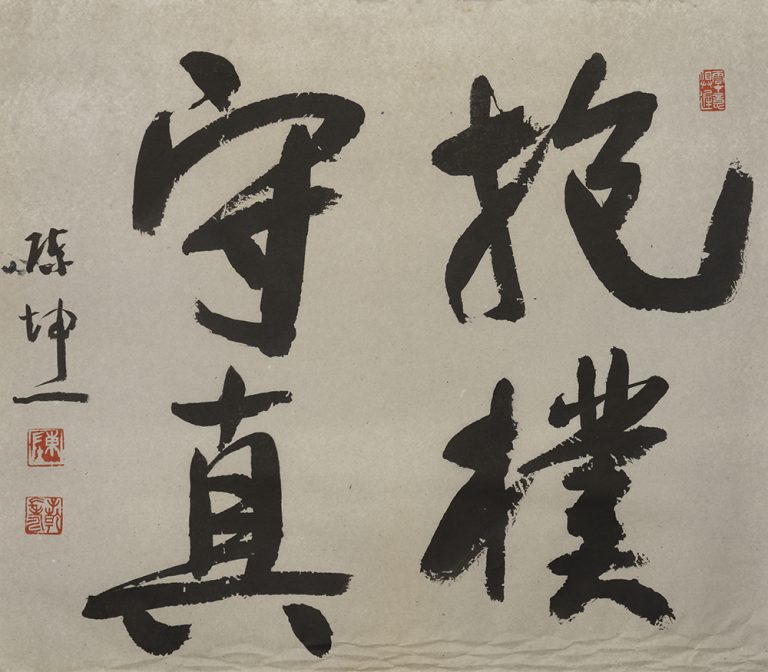 抱樸
守真
陳坤一